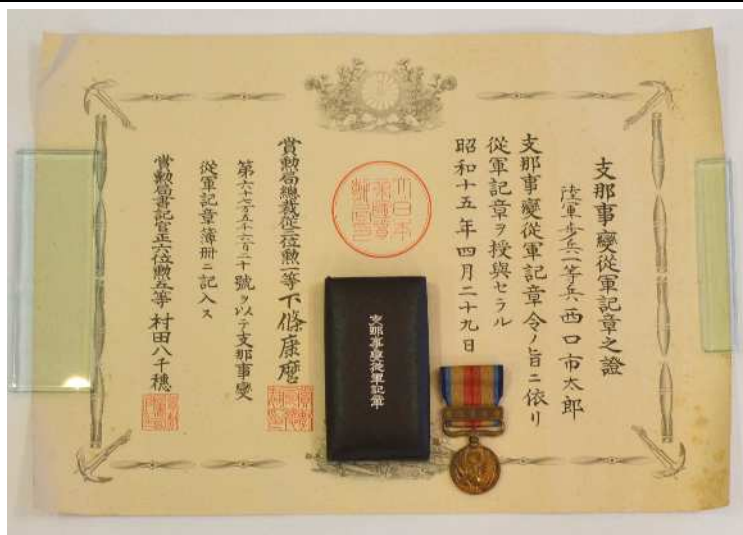 支那事變從軍記章之證
陸軍歩兵一等兵 西口市太郎
支那事變從軍記章令ノ旨ニ依リ
從軍記章ヲ授與セラル
昭和十五年四月二十九日
大日本
賞勲局總裁從三位勲一等下條康麿
號ヲ以テ支那事變
從軍記章簿冊ニ記入ス
賞勲局書記官正六位勲五等村田八千穗
支那事變從軍記章